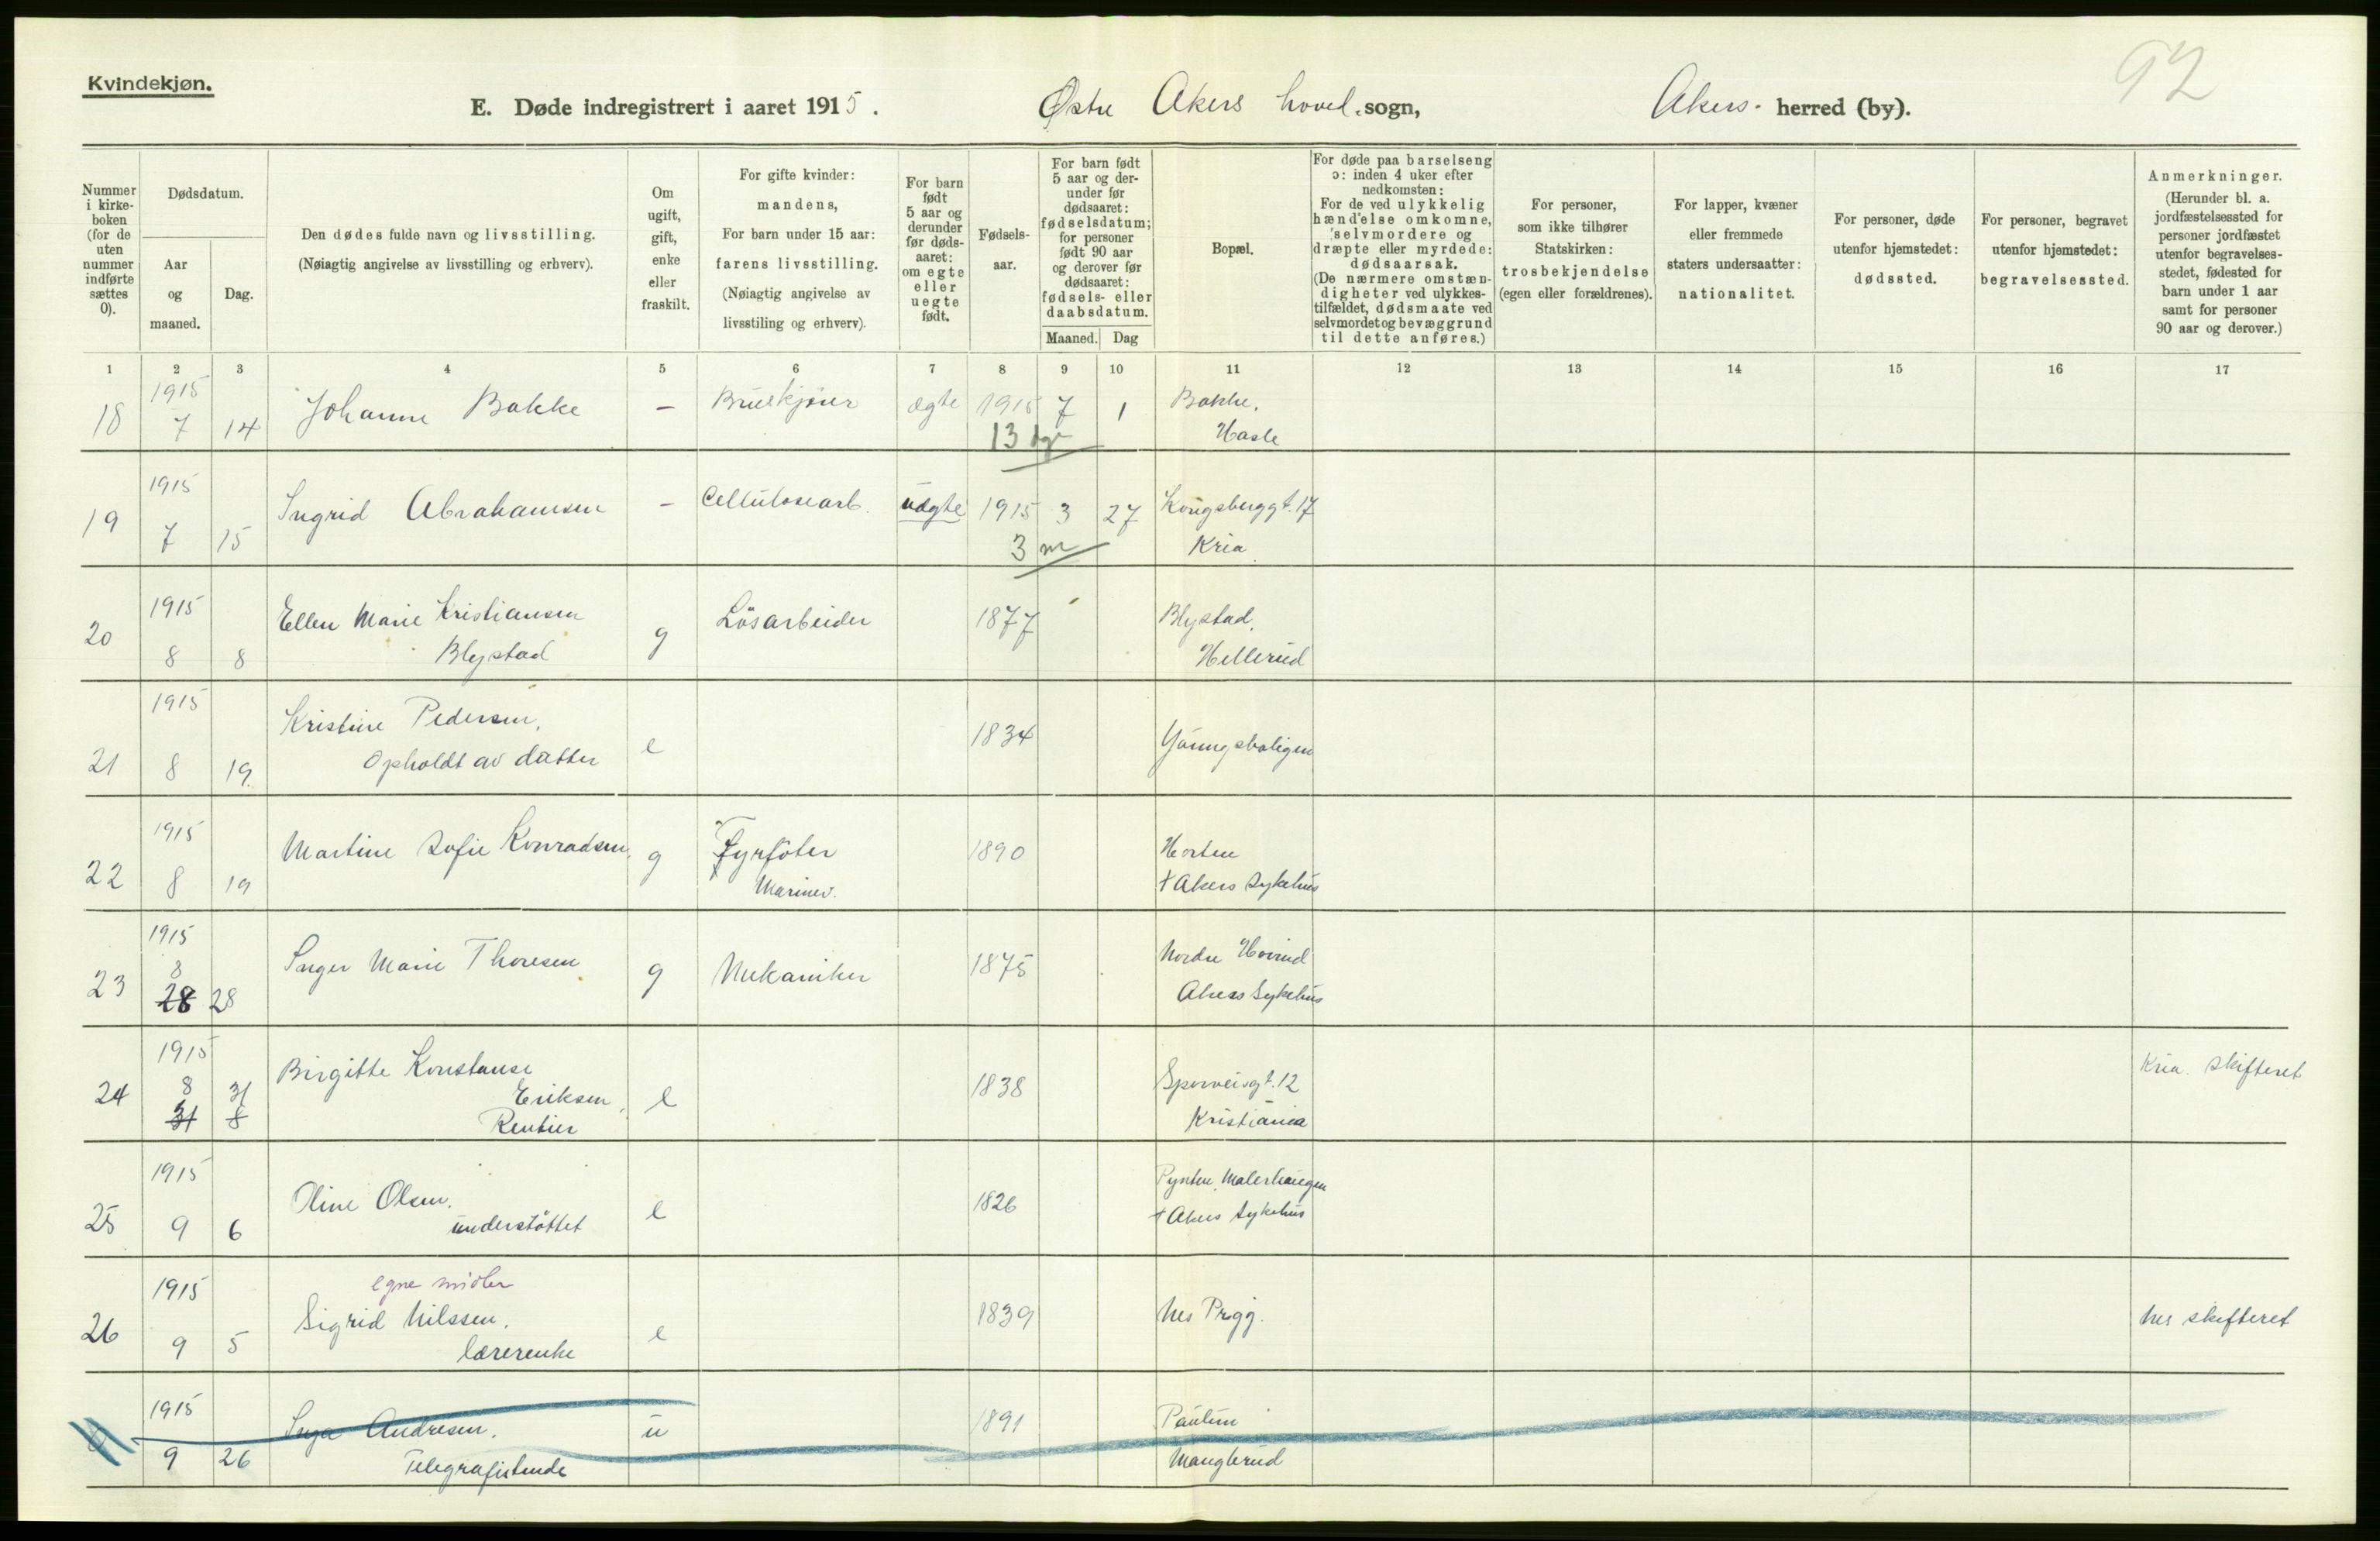 92
Kvindekjøn.
E. Døde indregistrert i aaret 1915. Østre Akers hoved. sogn, Akers - herred (by).
Nummer i kirke-boken (for de uten nummer indførte sættes 0).
Dødsdatum.
Aar og maaned.
Dag.
Den dødes fulde navn og livsstilling.
(Nøiagtig angivelse av livsstilling og erhverv).
Om ugift, gift, enke eller fraskilt.
For gifte kvinder: mandens,
For barn under 15 aar: farens livsstilling.
(Nøiagtig angivelse av livsstiling og erhverv).
For barn født 5 aar og derunder før døds-aaret: om egte eller uegte født.
Fødsels-aar.
For barn født 5 aar og der-under før dødsaaret: fødselsdatum; for personer født 90 aar og derover før dødsaaret: fødsels- eller daabsdatum.
Maaned. Dag
Bopæl.
For døde paa barselseng ɔ: inden 4 uker efter nedkomsten:
For de ved ulykkelig hændelse omkomne, selvmordere og dræpte eller myrdede: dødsaarsak.
(De nærmere omstæn-digheter ved ulykkes-tilfældet, dødsmaate ved selvmordet og bevæggrund til dette anføres.)
For personer, som ikke tilhører Statskirken: trosbekjendelse (egen eller forældrenes).
For lapper, kvæner eller fremmede staters undersaatter: nationalitet.
For personer, døde utenfor hjemstedet: dødssted.
For personer, begravet utenfor hjemstedet: begravelsessted.
Anmerkninger.
(Herunder bl. a. jordfæstelsessted for personer jordfæstet utenfor begravelses-stedet, fødested for barn under 1 aar samt for personer 90 aar og derover.)
1 2 3 4 5 6 7 8 9 10 11 12 13 14 15 16 17
1915
18 7 14 Johanne Bakke - Bruskjører ægte 1915 7 1 Bakke,
13 dgr Hasle
1915
19 7 15 Ingrid Abrahamsen - Cellulosearb. uægte 1915 3 27 Kongsberggt. 17
3 m Kria
1915
20 8 8 Ellen Marie Kristiansen g Løsarbeider 1877 Blystad,
Blystad Hellerud
1915
21 8 19. Kristine Pedersen, e 1834 Youngsboligen
Opholdt av datter
1915
22 8 19 Martine Sofie Konradsen, g Fyrbøter 1890 Horten
Marinen. † Akers Sykehus
1915
23 8 28 28 Inger Marie Thoresen g Mekaniker 1875 Nordre Hovind
Akers Sykehus
1915
24 8 31 Birgitte Konstanse e 1838 Sporveisgt. 12 Kria. skifteret
31 8 Eriksen,
Rentier Kristiania
1915
25 9 6 Oline Olsen, e 1826 Pynten, Malerhaugen
understøttet † Akers Sykehus
1915 egne midler
26 9 5 Sigrid Nilssen, e 1839 Nes Prgj. Nes skifteret
lærerenke
1915
9 26 Inga Andresen, u 1891
Telegrafistinde Manglerud